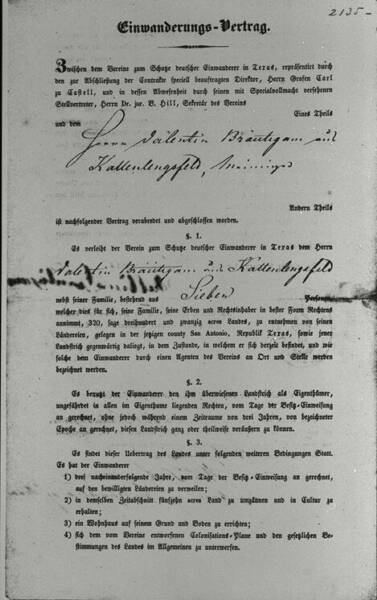 2135-
Einwanderungs-Vertrag.
Zwischen dem Vereine zum Schutze deutscher Einwanderer in Texas, repräsentirt durch
den zur Abschließung der Contrakte speciell beauftragten Direktor, Herrn Grafen Carl
zu Castell, und in dessen Abwesenheit durch seinen mit Specialvollmacht versehenen
Stellvertreter, Herrn Dr. jur. B. Hill, Sekretär des Vereins
Eines Theils
und dem
Herrn Valentin Bräutigam aus
Kaltenlengsfeld, Meiningen
Andern Theils
ist nachfolgender Vertrag verabredet und abgeschlossen worden.
§. 1.
Es verleiht der Verein zum Schutze deutscher Einwanderer in Texas dem Herrn
Valentin Bräutigam aus Kaltenlengsfeld
nebst seiner Familie, bestehend aus Sieben Personen
welcher dies für sich, seine Familie, seine Erben und Rechtsinhaber in bester Form Rechtens
annimmt, 320, sage dreihundert und zwanzig acres Landes, zu entnehmen von seinen
Ländereien, gelegen in der jetzigen county San Antonio, Republik Texas, sowie jener
Landstrich gegenwärtig daliegt, in dem Zustande, in welchem er sich derzeit befindet, und wie
solche dem Einwanderer durch einen Agenten des Vereins an Ort und Stelle werden
bezeichnet werden.
§. 2.
Es benutzt der Einwanderer den ihm überwiesenen Landstrich als Eigenthümer,
ungefährdet in allen im Eigenthume liegenden Rechten, vom Tage der Besitz-Einweisung
an gerechnet, ohne jedoch während einem Zeitraume von drei Jahren, von bezeichneter
Epoche an gerechnet, diesen Landstrich ganz oder theilweise veräußern zu können.
§. 3.
Es findet dieser Uebertrag des Landes unter folgenden weiteren Bedingungen Statt.
Es hat der Einwanderer
1) drei nacheinanderfolgende Jahre, vom Tage der Besitz-Einweisung an gerechnet,
auf den bewilligten Ländereien zu verweilen;
2) in demselben Zeitabschnitt fünfzehn acres Land zu umzäunen und in Cultur zu
erhalten;
3) ein Wohnhaus auf seinem Grund und Boden zu errichten;
4) sich dem vom Vereine entworfenen Colonisations-Plane und den gesetzlichen Be-
stimmungen des Landes im Allgemeinen zu unterwerfen.